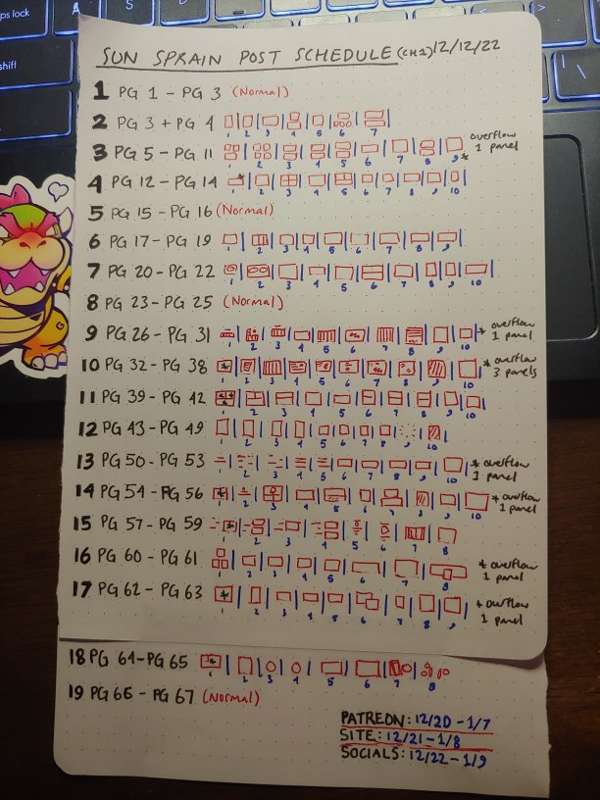 ps lock
A
S
shift
SUN SPRAIN POST SCHEDULE (CH2) 12/12/22
1 PG 1 - PG 3 (Normal)
2 PG 3 + PG 4 1 2 3 4 5 6 7
3 PG 5 - PG 11 1 2 3 4 5 6 7 8 9 * overflow 1 panel
4 PG 12 - PG 14 * 1 2 3 4 5 6 7 8 9 10
5 PG 15 - PG 16 (Normal)
6 PG 17 - PG 19 1 2 3 4 5 6 7 8 9
7 PG 20 - PG 22 1 2 3 4 5 6 7 8 9 10
8 PG 23 - PG 25 (Normal)
9 PG 26 - PG 31 1 2 3 4 5 6 7 8 9 10 * overflow 1 panel
10 PG 32 - PG 38 * 1 2 3 4 5 6 7 8 9 10 * overflow 3 panels
11 PG 39 - PG 42 * 1 2 3 4 5 6 7 8 9 10
12 PG 43 - PG 49 1 2 3 4 5 6 7 8 9 10
13 PG 50 - PG 53 1 2 3 4 5 6 7 8 9 10 * overflow 1 panel
14 PG 54 - PG 56 * 1 2 3 4 5 6 7 8 9 10 * overflow 1 panel
15 PG 57 - PG 59 * 1 2 3 4 5 6 7 8
16 PG 60 - PG 61 1 2 3 4 5 6 7 8 * overflow 1 panel
17 PG 62 - PG 63 * 1 2 3 4 5 6 7 8 9 * overflow 1 panel
18 PG 64 - PG 65 * 1 2 3 4 5 6 7 8
19 PG 66 - PG 67 (Normal)
PATREON: 12/20 - 1/7
SITE: 12/21 - 1/8
SOCIALS: 12/22 - 1/9